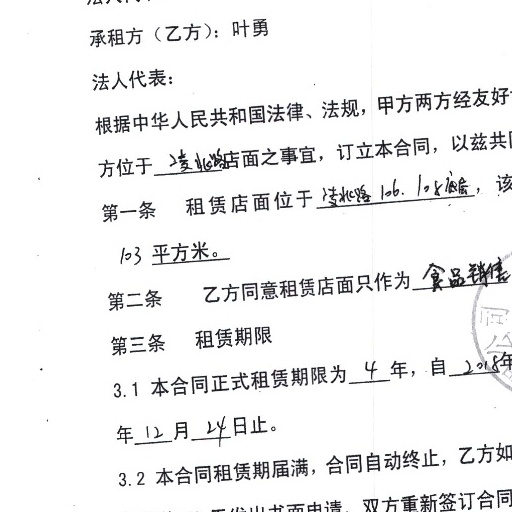 承租方（乙方）：叶勇
法人代表：
根据中华人民共和国法律、法规，甲方两方经友好
方位于 凌北路店面之事宜，订立本合同，以兹共
第一条 租赁店面位于 凌北路106.108底层，该
103 平方米。
第二条 乙方同意租赁店面只作为 食品销售
第三条 租赁期限
3.1 本合同正式租赁期限为 4 年，自 2015年
年 12 月 24日止。
3.2 本合同租赁期届满，合同自动终止，乙方如
发出书面申请，双方重新签订合同